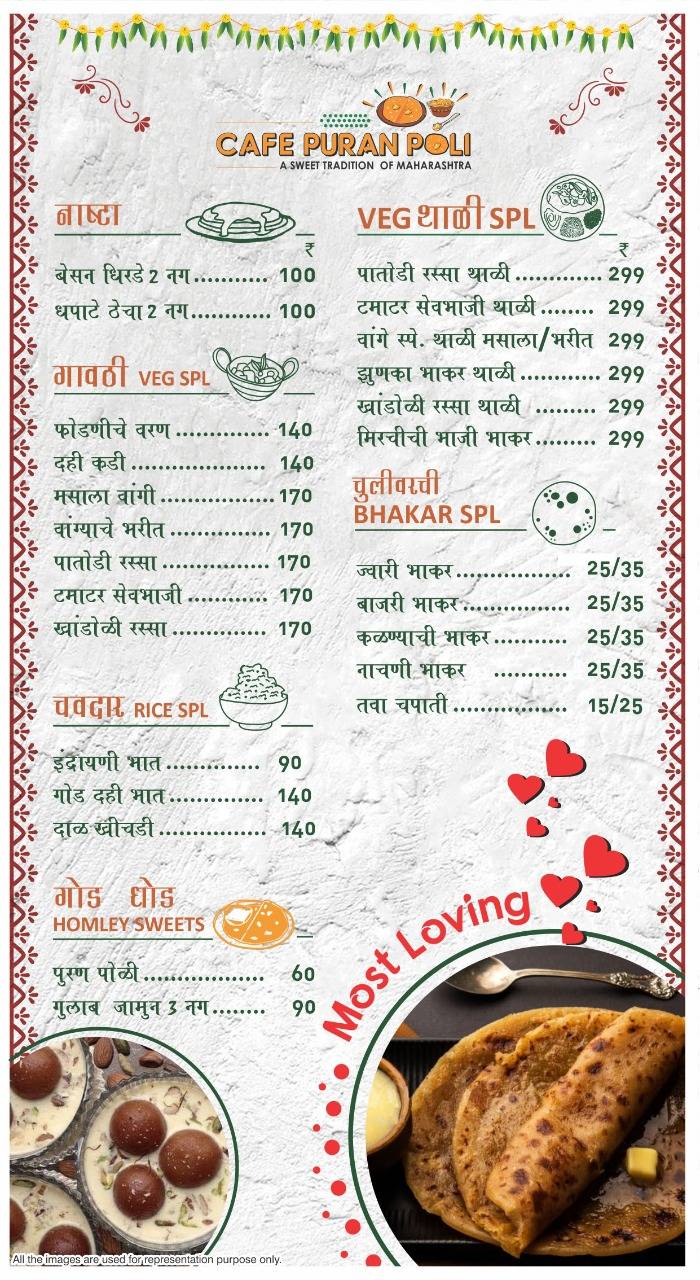 CAFE PURAN POLI
A SWEET TRADITION OF MAHARASHTRA
नाष्टा
₹
बेसन धिरडे 2 नग............ 100
धपाटे ठेचा 2 नग............... 100
गावठी VEG SPL
फोडणीचे वरण ............... 140
दही कडी ..................... 140
मसाला वांगी .................. 170
वांग्याचे भरीत ................ 170
पातोडी रस्सा ................. 170
टमाटर सेवभाजी ............ 170
खांडोळी रस्सा ............... 170
चवदार RICE SPL
इंद्रायणी भात ............... 90
गोड दही भात .............. 140
दाळ खीचडी ................. 140
गोड धोड
HOMLEY SWEETS
पुरण पोळी.................... 60
गुलाब जामुन 3 नग........ 90
VEG थाळी SPL
₹
पातोडी रस्सा थाळी .............. 299
टमाटर सेवभाजी थाळी ........ 299
वांगे स्पे. थाळी मसाला/भरीत 299
झुणका भाकर थाळी ............. 299
खांडोळी रस्सा थाळी .......... 299
मिरचीची भाजी भाकर.......... 299
चुलीवरची
BHAKAR SPL
ज्वारी भाकर................... 25/35
बाजरी भाकर.................. 25/35
कळण्याची भाकर ............ 25/35
नाचणी भाकर ............ 25/35
तवा चपाती ................... 15/25
Most Loving
All the images are used for representation purpose only.